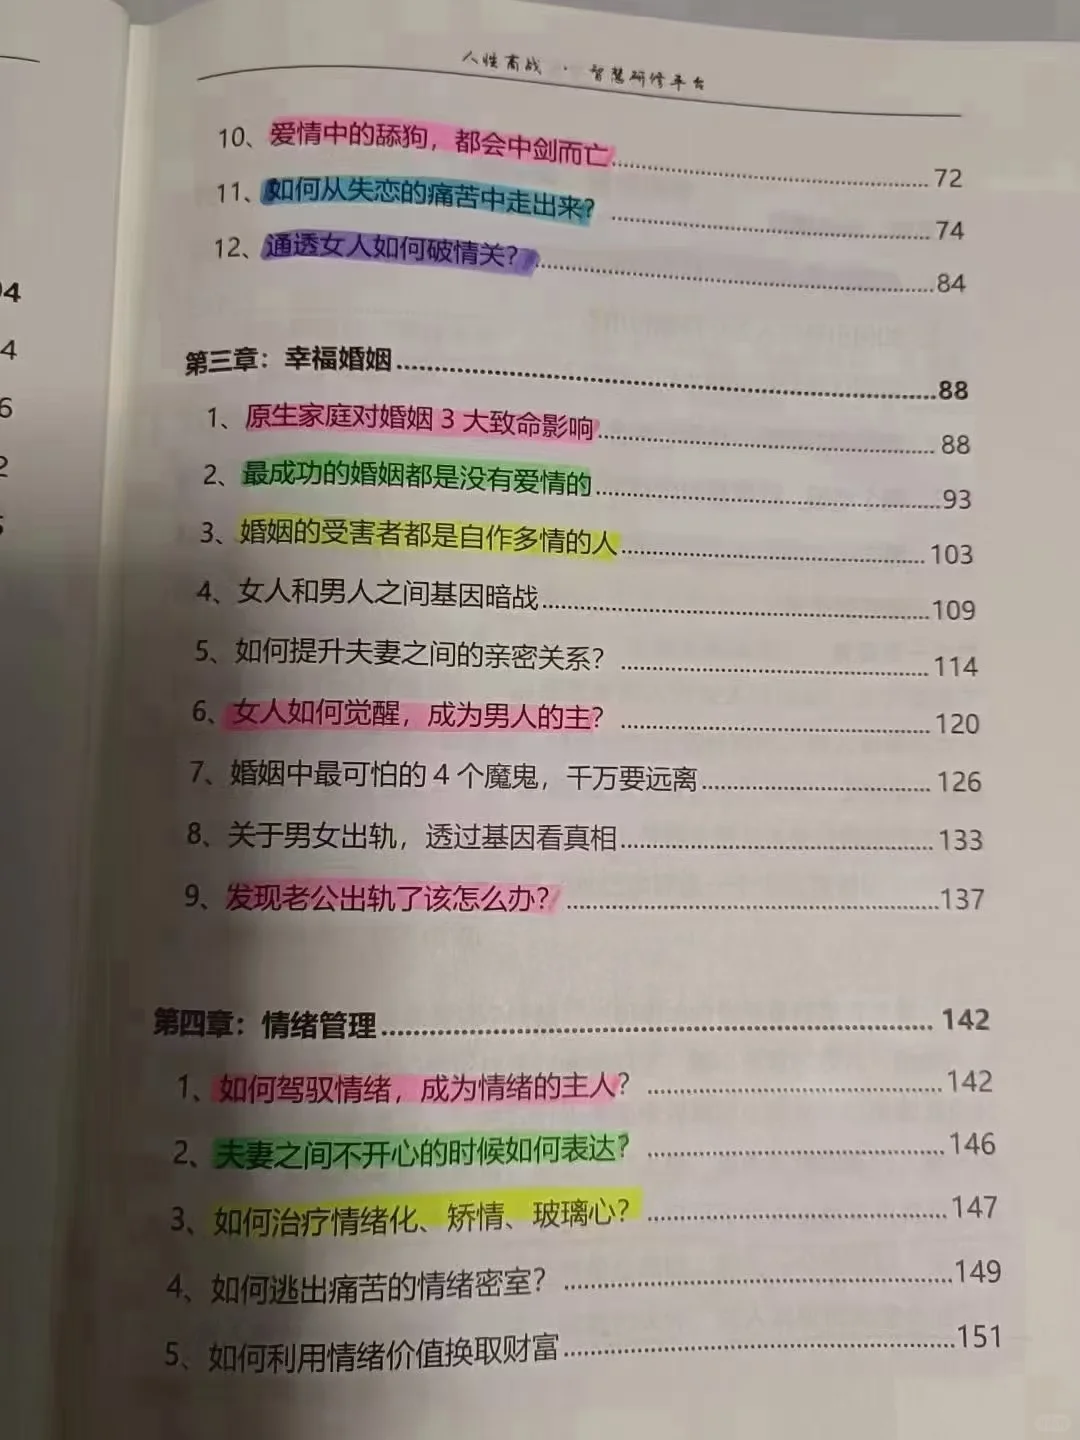 人性商战 · 智慧研修平台
10、爱情中的舔狗，都会中剑而亡..........72
11、如何从失恋的痛苦中走出来？..........74
12、通透女人如何破情关？..........84
第三章：幸福婚姻..........88
1、原生家庭对婚姻 3 大致命影响..........88
2、最成功的婚姻都是没有爱情的..........93
3、婚姻的受害者都是自作多情的人..........103
4、女人和男人之间基因暗战..........109
5、如何提升夫妻之间的亲密关系？..........114
6、女人如何觉醒，成为男人的主？..........120
7、婚姻中最可怕的 4 个魔鬼，千万要远离..........126
8、关于男女出轨，透过基因看真相..........133
9、发现老公出轨了该怎么办？..........137
第四章：情绪管理..........142
1、如何驾驭情绪，成为情绪的主人？..........142
2、夫妻之间不开心的时候如何表达？..........146
3、如何治疗情绪化、矫情、玻璃心？..........147
4、如何逃出痛苦的情绪密室？..........149
5、如何利用情绪价值换取财富..........151